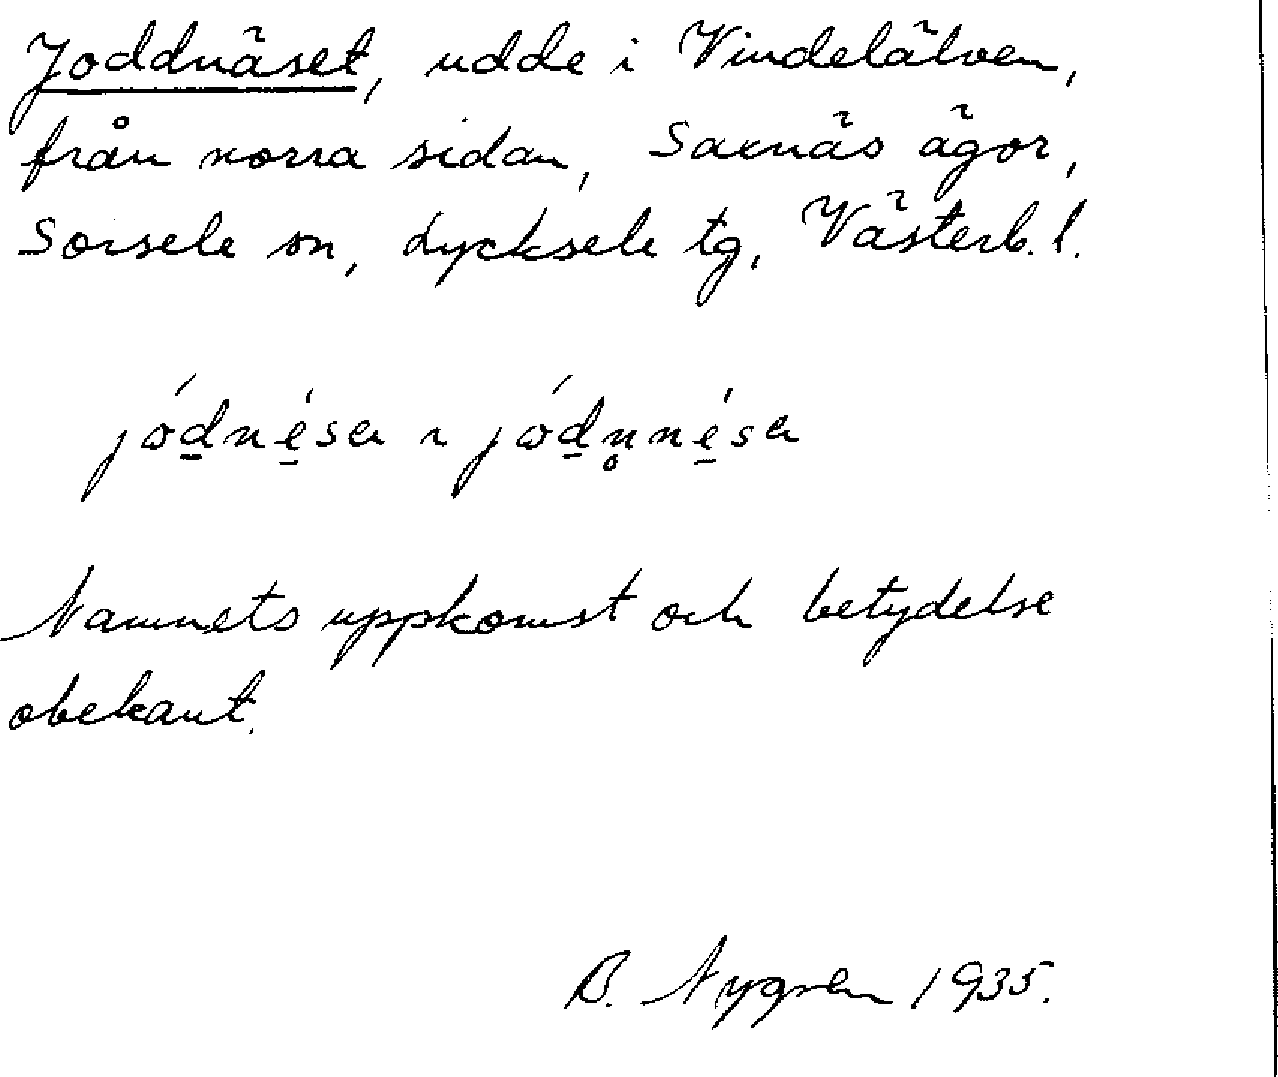 Joddnäset, udde i Vindelälven,
från norra sidan, Saxnäs ägor,
Sorsele sn, Lycksele tg, Västerb. l.
Namnets uppkomst och betydelse
obekant.
B. Nygren 1935.